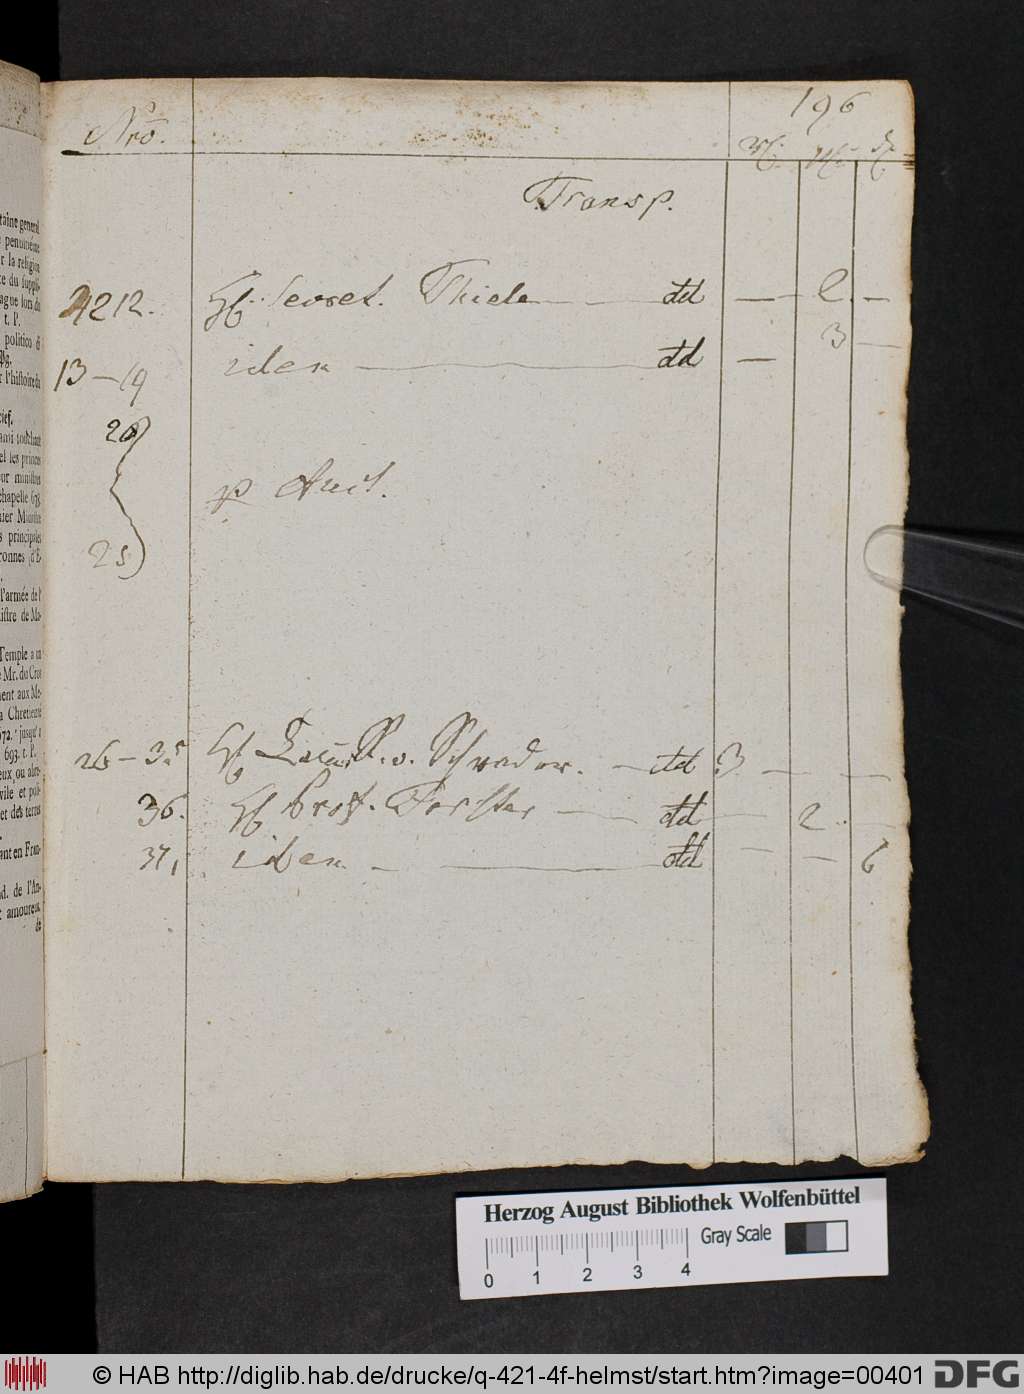 196
Nrō.
Transp.
4212. H. Secret. Thiele dd — 2. —
13 — 19 idem dd — 3 —
20
p Auct.
25
26 — 35 H. v. Schrader. dd 3 — —
36. H. Prof. Forster dd — 2. —
37, idem dd — — 6
taine general
penultiéme
r la religion
te du suppli-
ague lors du
t. P.
politico di
l'histoire du
cief.
el les princes
ur ministres
chapelle 673.
nier Ministre
s principales
ronnes (d'E-
l'armée de l'
istre de Ma-
Temple a un
Mr. du Cros
ment aux Me-
a Chretienté
672. jusqu'a
693. t. P.
eux ou abre-
vile et poli-
et des terres
ant en Fran-
d. de l'An-
amoureux
de
Herzog August Bibliothek Wolfenbüttel
Gray Scale
0 1 2 3 4
© HAB http://diglib.hab.de/drucke/q-421-4f-helmst/start.htm?image=00401 DFG